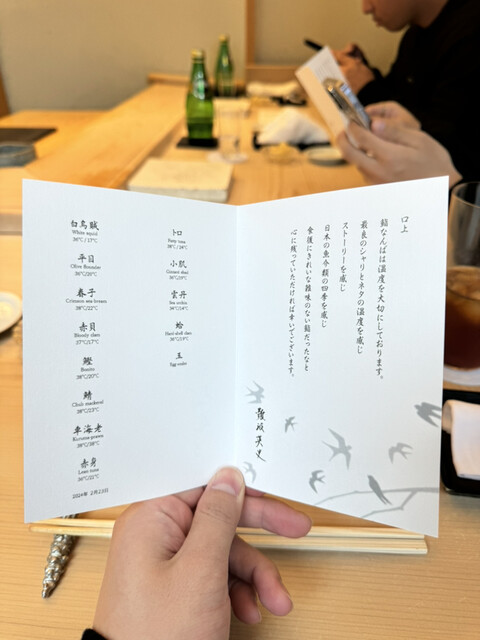 白烏賊
White squid
36℃ / 17℃
平目
Olive flounder
36℃/20℃
春子
Crimson sea bream
38℃/22℃
赤貝
Bloody clam
37℃/17℃
鰹
Bonito
38℃/20℃
鯖
Chub mackerel
38℃/23℃
車海老
Kuruma prawn
38℃/39℃
赤身
Lean tuna
36℃/21℃
2024年 2月23日
トロ
Fatty tuna
38℃/24℃
小肌
Gizzard shad
36℃/20℃
雲丹
Sea urchin
36℃/14℃
蛤
Hard-shell clam
玉
Egg omlet
口上
鮨なんばは温度を大切にしております。
最良のシャリとネタの温度を感じ
ストーリーを感じ
日本の魚介類の四季を感じ
食後にきれいな雑味のない鮨だったなと
心に残っていただければ幸いでございます。